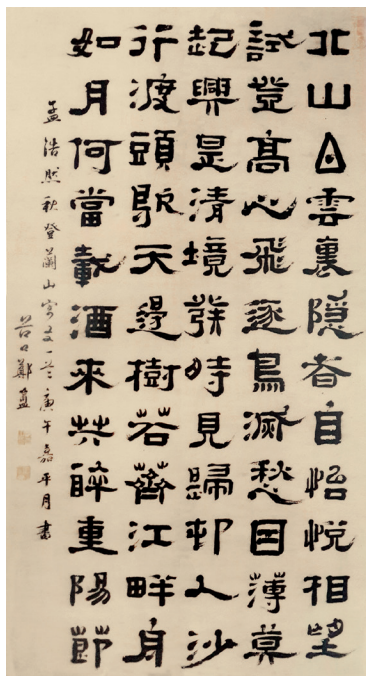 北山白雲裏隱者自怡悅相望
試登高心飛逐鳥滅愁因薄莫
起興是清境發時見歸邨人沙
行渡頭歇天邊樹若薺江畔身
如月何當載酒來共醉重陽節
孟浩然秋登蘭山寄五一首庚午嘉平月書
谷口鄭簠